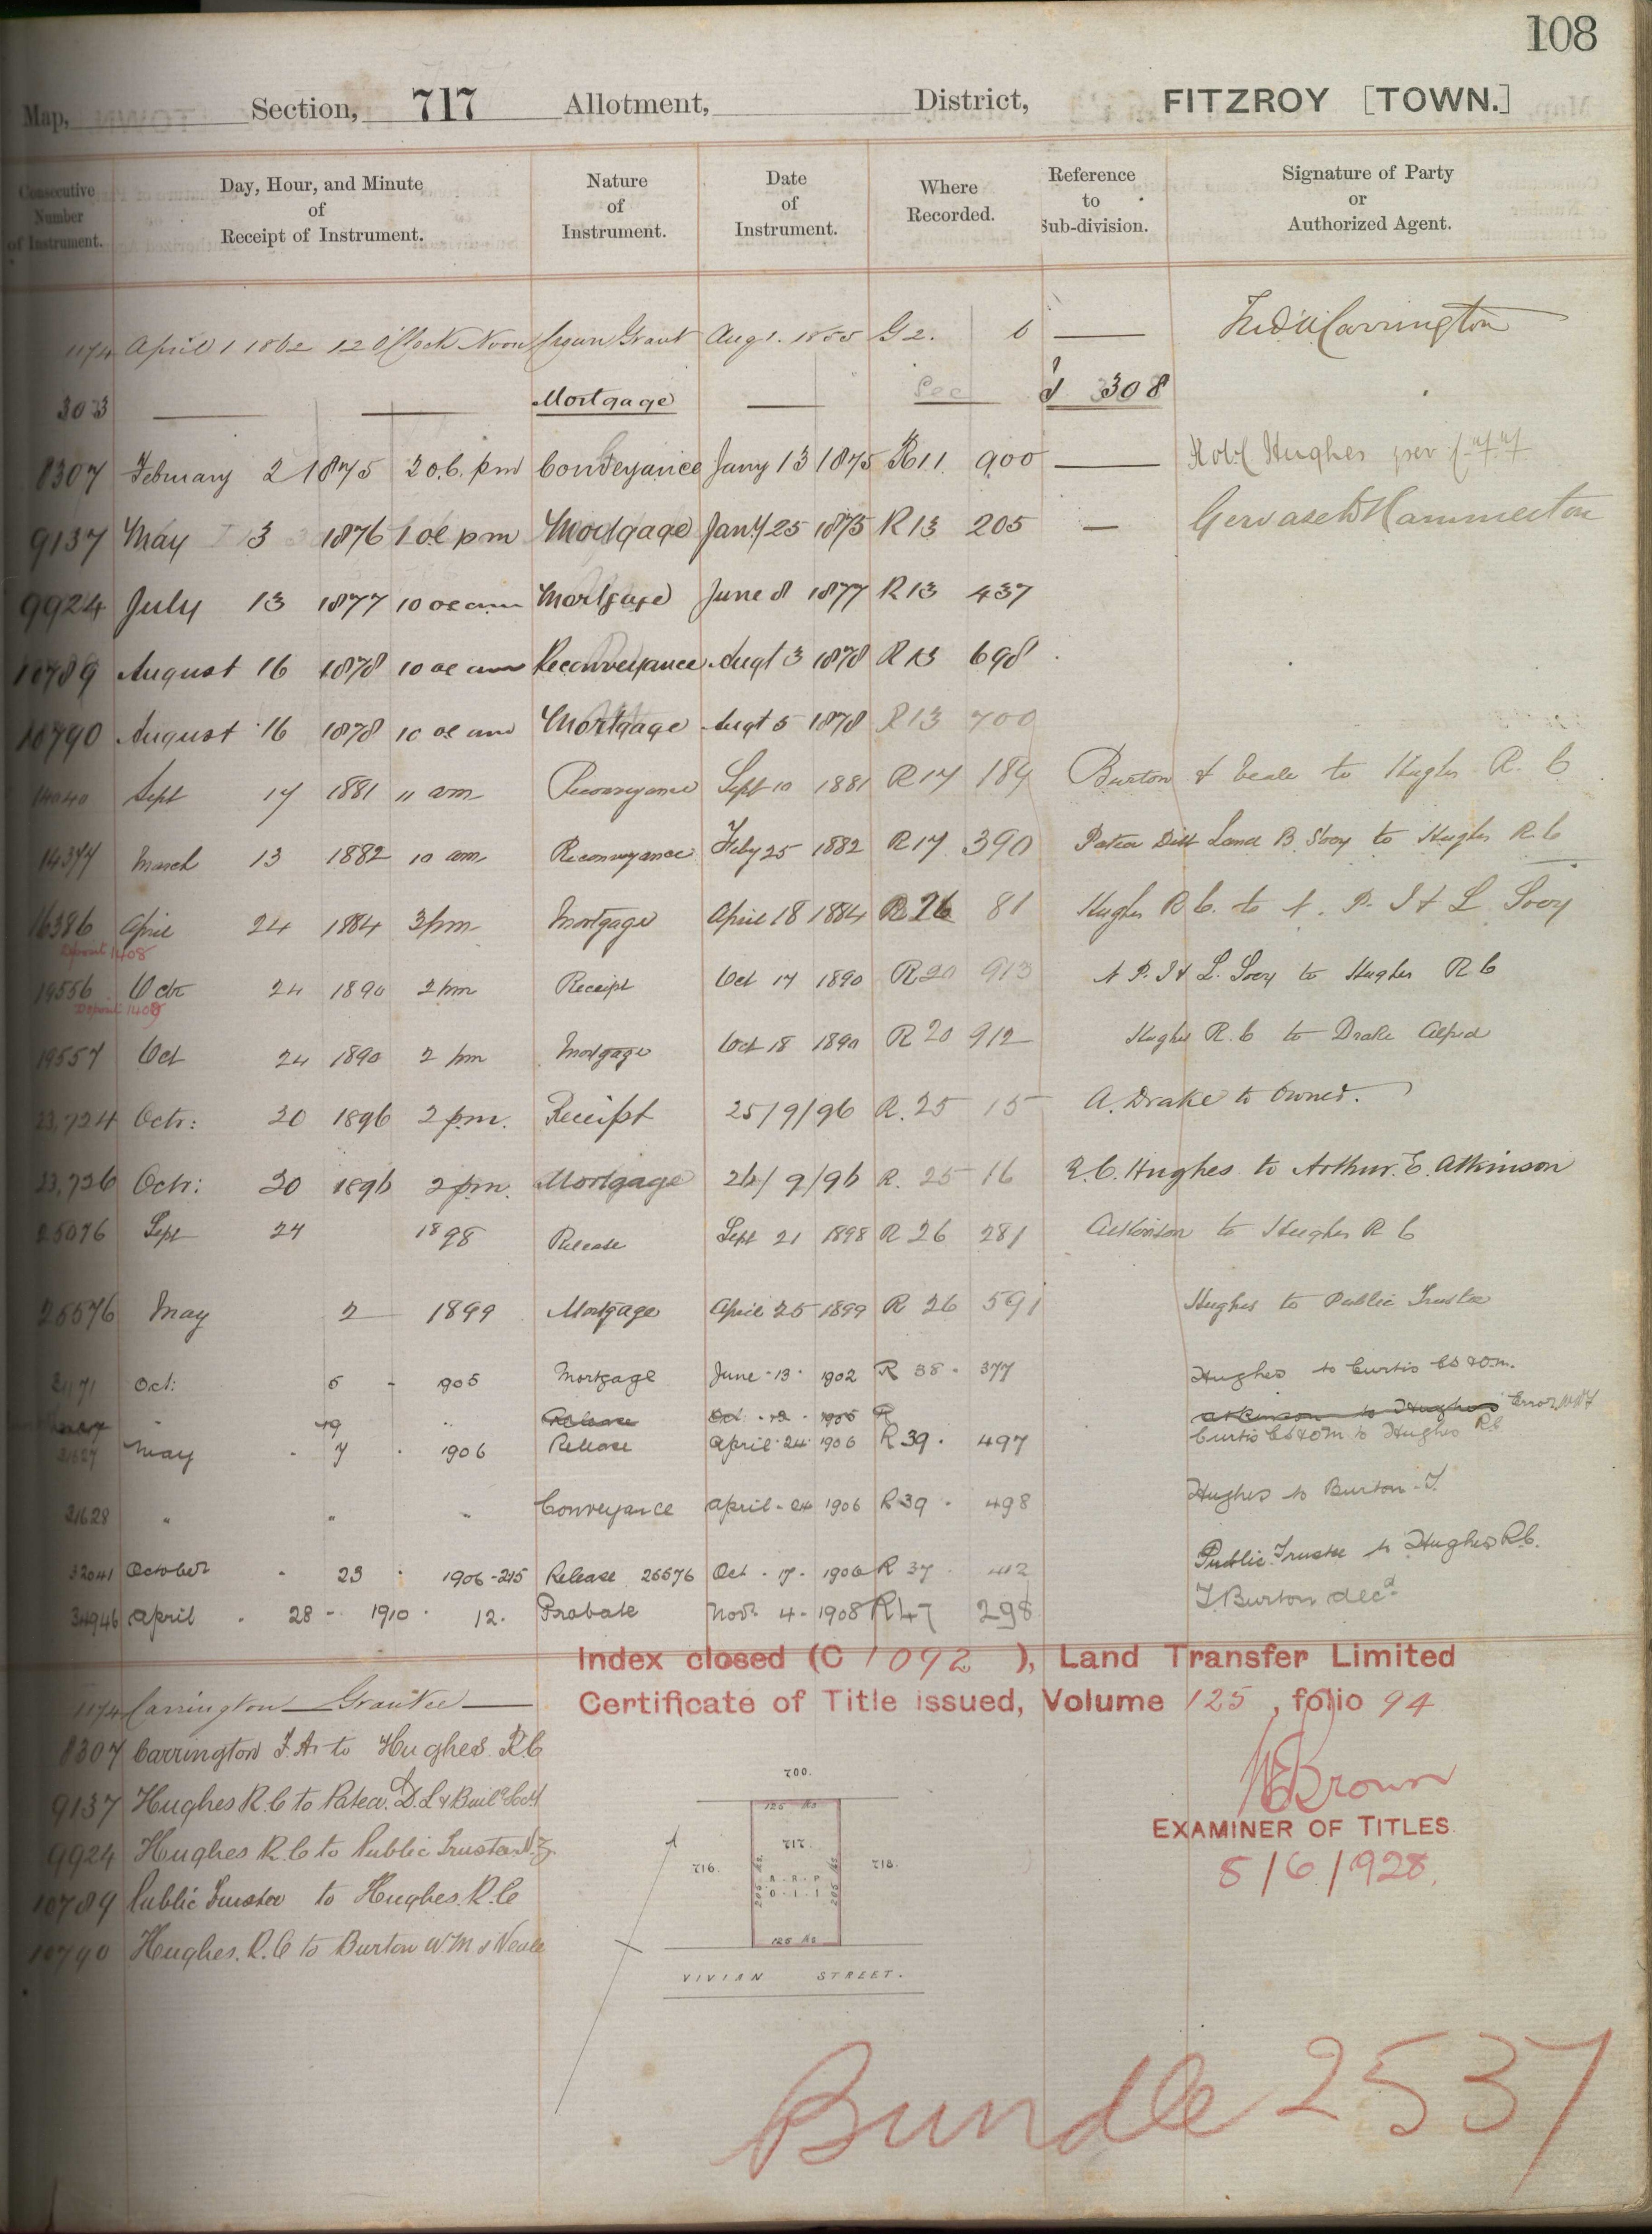 108
Map, Section, 717 Allotment, District, FITZROY [TOWN.]
Consecutive Number of Instrument. Day, Hour, and Minute of Receipt of Instrument. Nature of Instrument. Date of Instrument. Where Recorded. Reference to Sub-division. Signature of Party or Authorized Agent.
1174 April 1 1862 12 O'Clock Noon Crown Grant Aug 1. 1855 G 2. 6 Fred A Carrington
303 Mortgage See 308
8307 February 2 1875 Conveyance Jany 13 1875 R11 900 Hughes per
9137 May 3 1876 1 oc pm Mortgage Jany 25 1875 R 13 205 Hammerton
9924 July 13 1877 10 oc am Mortgage June 8 1877 R 13 437
10789 August 16 1878 10 oc am Reconveyance Augt 3 1878 R 13 698
10790 August 16 1878 10 oc am Mortgage Augt 5 1878 R 13 700
14040 Sept 17 1881 11 am Reconveyance Sept 10 1881 R 17 184 Burton & Veale to Hughes R. C
14377 March 13 1882 10 am Reconveyance Feby 25 1882 R 17 390 Patea Dist Land B. Socy to Hughes R. C
16386 April 24 1884 3 pm Mortgage April 18 1884 R 26 81 Hughes R C. to N. P. I & L Socy
Deposit 1408
19556 Octr 24 1890 2 pm Receipt Oct 17 1890 R 20 913 N P. I & L. Socy to Hughes R C
Deposit 1408
19557 Oct 24 1890 2 pm Mortgage Oct 18 1890 R 20 912 Hughes R. C to Drake Alfred
23,724 Octr: 20 1896 2 pm. Receipt 25/9/96 R. 25 15 A. Drake to Owner.
23,726 Octr: 20 1896 2 pm. Mortgage 26/9/96 R. 25 16 R. C. Hughes to Arthur. E. Atkinson
25076 Sept 24 1898 Release Sept 21 1898 R 26 281 Atkinson to Hughes R C
26576 May 2 1899 Mortgage April 25 1899 R 26 591 Hughes to Public Trustee
31171 Oct: 5 - 905 Mortgage June - 13 - 1902 R 38 - 377 Hughes to Curtis
" 19 " Release Oct - 12 - 1905 R Atkinson to Hughes Error
31627 May 7 1906 Release April - 24 1906 R 39 - 497 Curtis to Hughes R C
31628 " " " Conveyance April - 24 1906 R 39 - 498 Hughes to Burton. T.
32041 October 23 1906 - 2.15 Release 26576 Oct - 17 - 1906 R 37 412 Public Trustee to Hughes R. C.
34946 April 28 - 1910 12. Probate Novr 4 - 1908 R 47 298 T. Burton decd
Index closed (C 1092 ), Land Transfer Limited
Certificate of Title issued, Volume 125 , folio 94
1174 Carrington Grantee
8307 Carrington F. A. to Hughes R. C
9137 Hughes R. C to Patea. D. L & Build Socy
9924 Hughes R. C to Public Trustee N. Z.
10789 Public Trustee to Hughes. R. C
10790 Hughes. R. C to Burton W. M & Veale
Brown
EXAMINER OF TITLES
5/6/1928.
700.
125 lks
716. 717. 718.
A - R - P
0 - 1 - 1
125 lks
VIVIAN STREET.
Bundle 2537